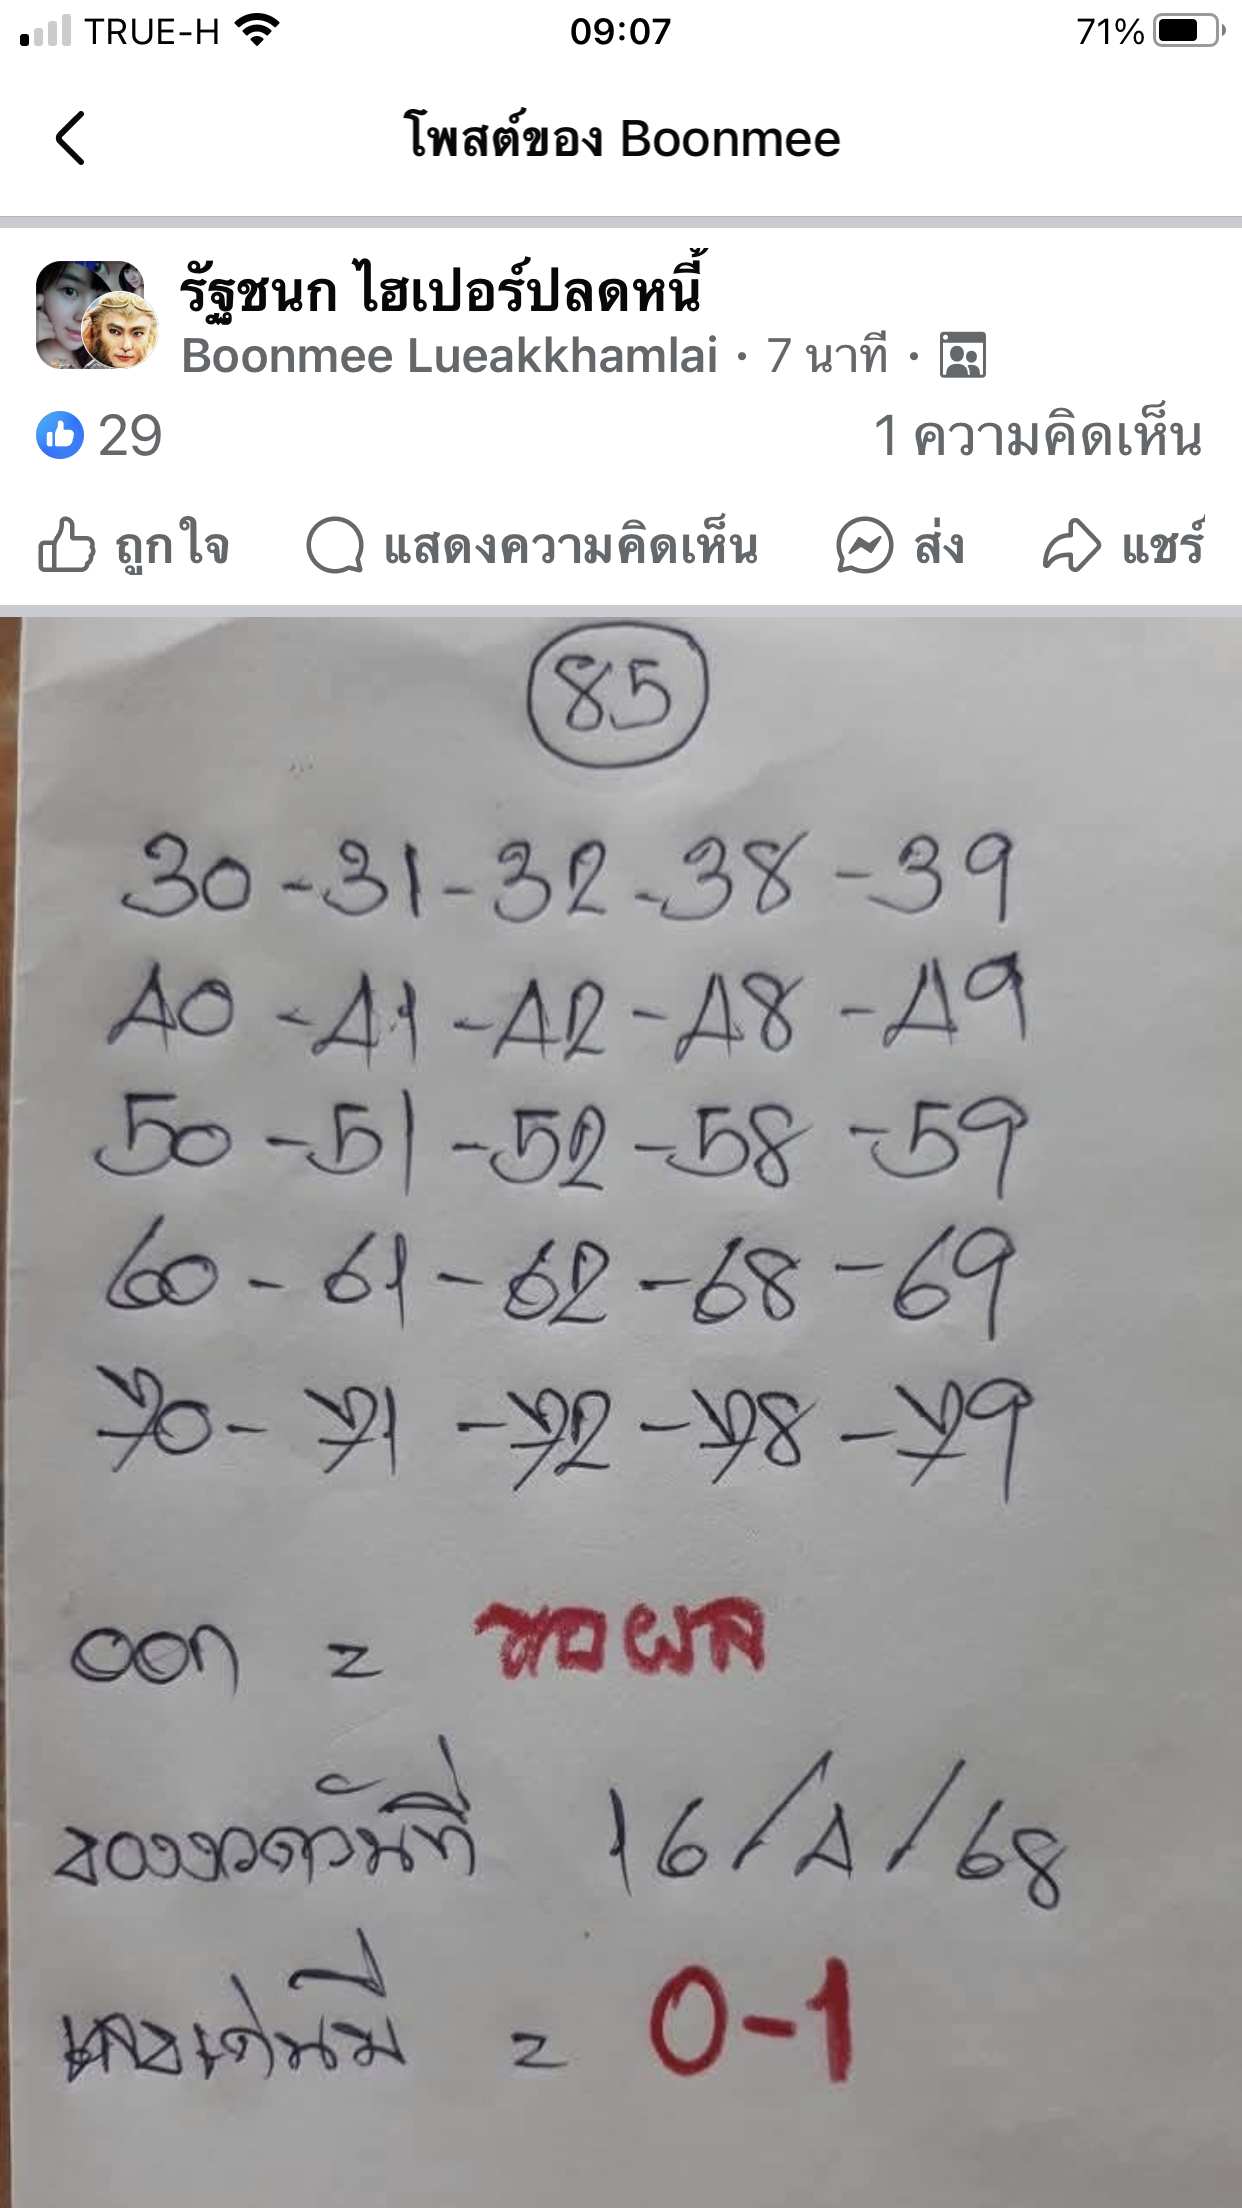 TRUE-H 09:07 71%
โพสต์ของ Boonmee
รัฐชนก ไฮเปอร์ปลดหนี้
Boonmee Lueakkhamlai · 7 นาที ·
29 1 ความคิดเห็น
ถูกใจ แสดงความคิดเห็น ส่ง แชร์
85
30 - 31 - 32 - 38 - 39
40 - 41 - 42 - 48 - 49
50 - 51 - 52 - 58 - 59
60 - 61 - 62 - 68 - 69
70 - 71 - 72 - 78 - 79
ออก = ขอผล
ของงวดวันที่ 16/4/68
เลขเด่นมี = 0-1